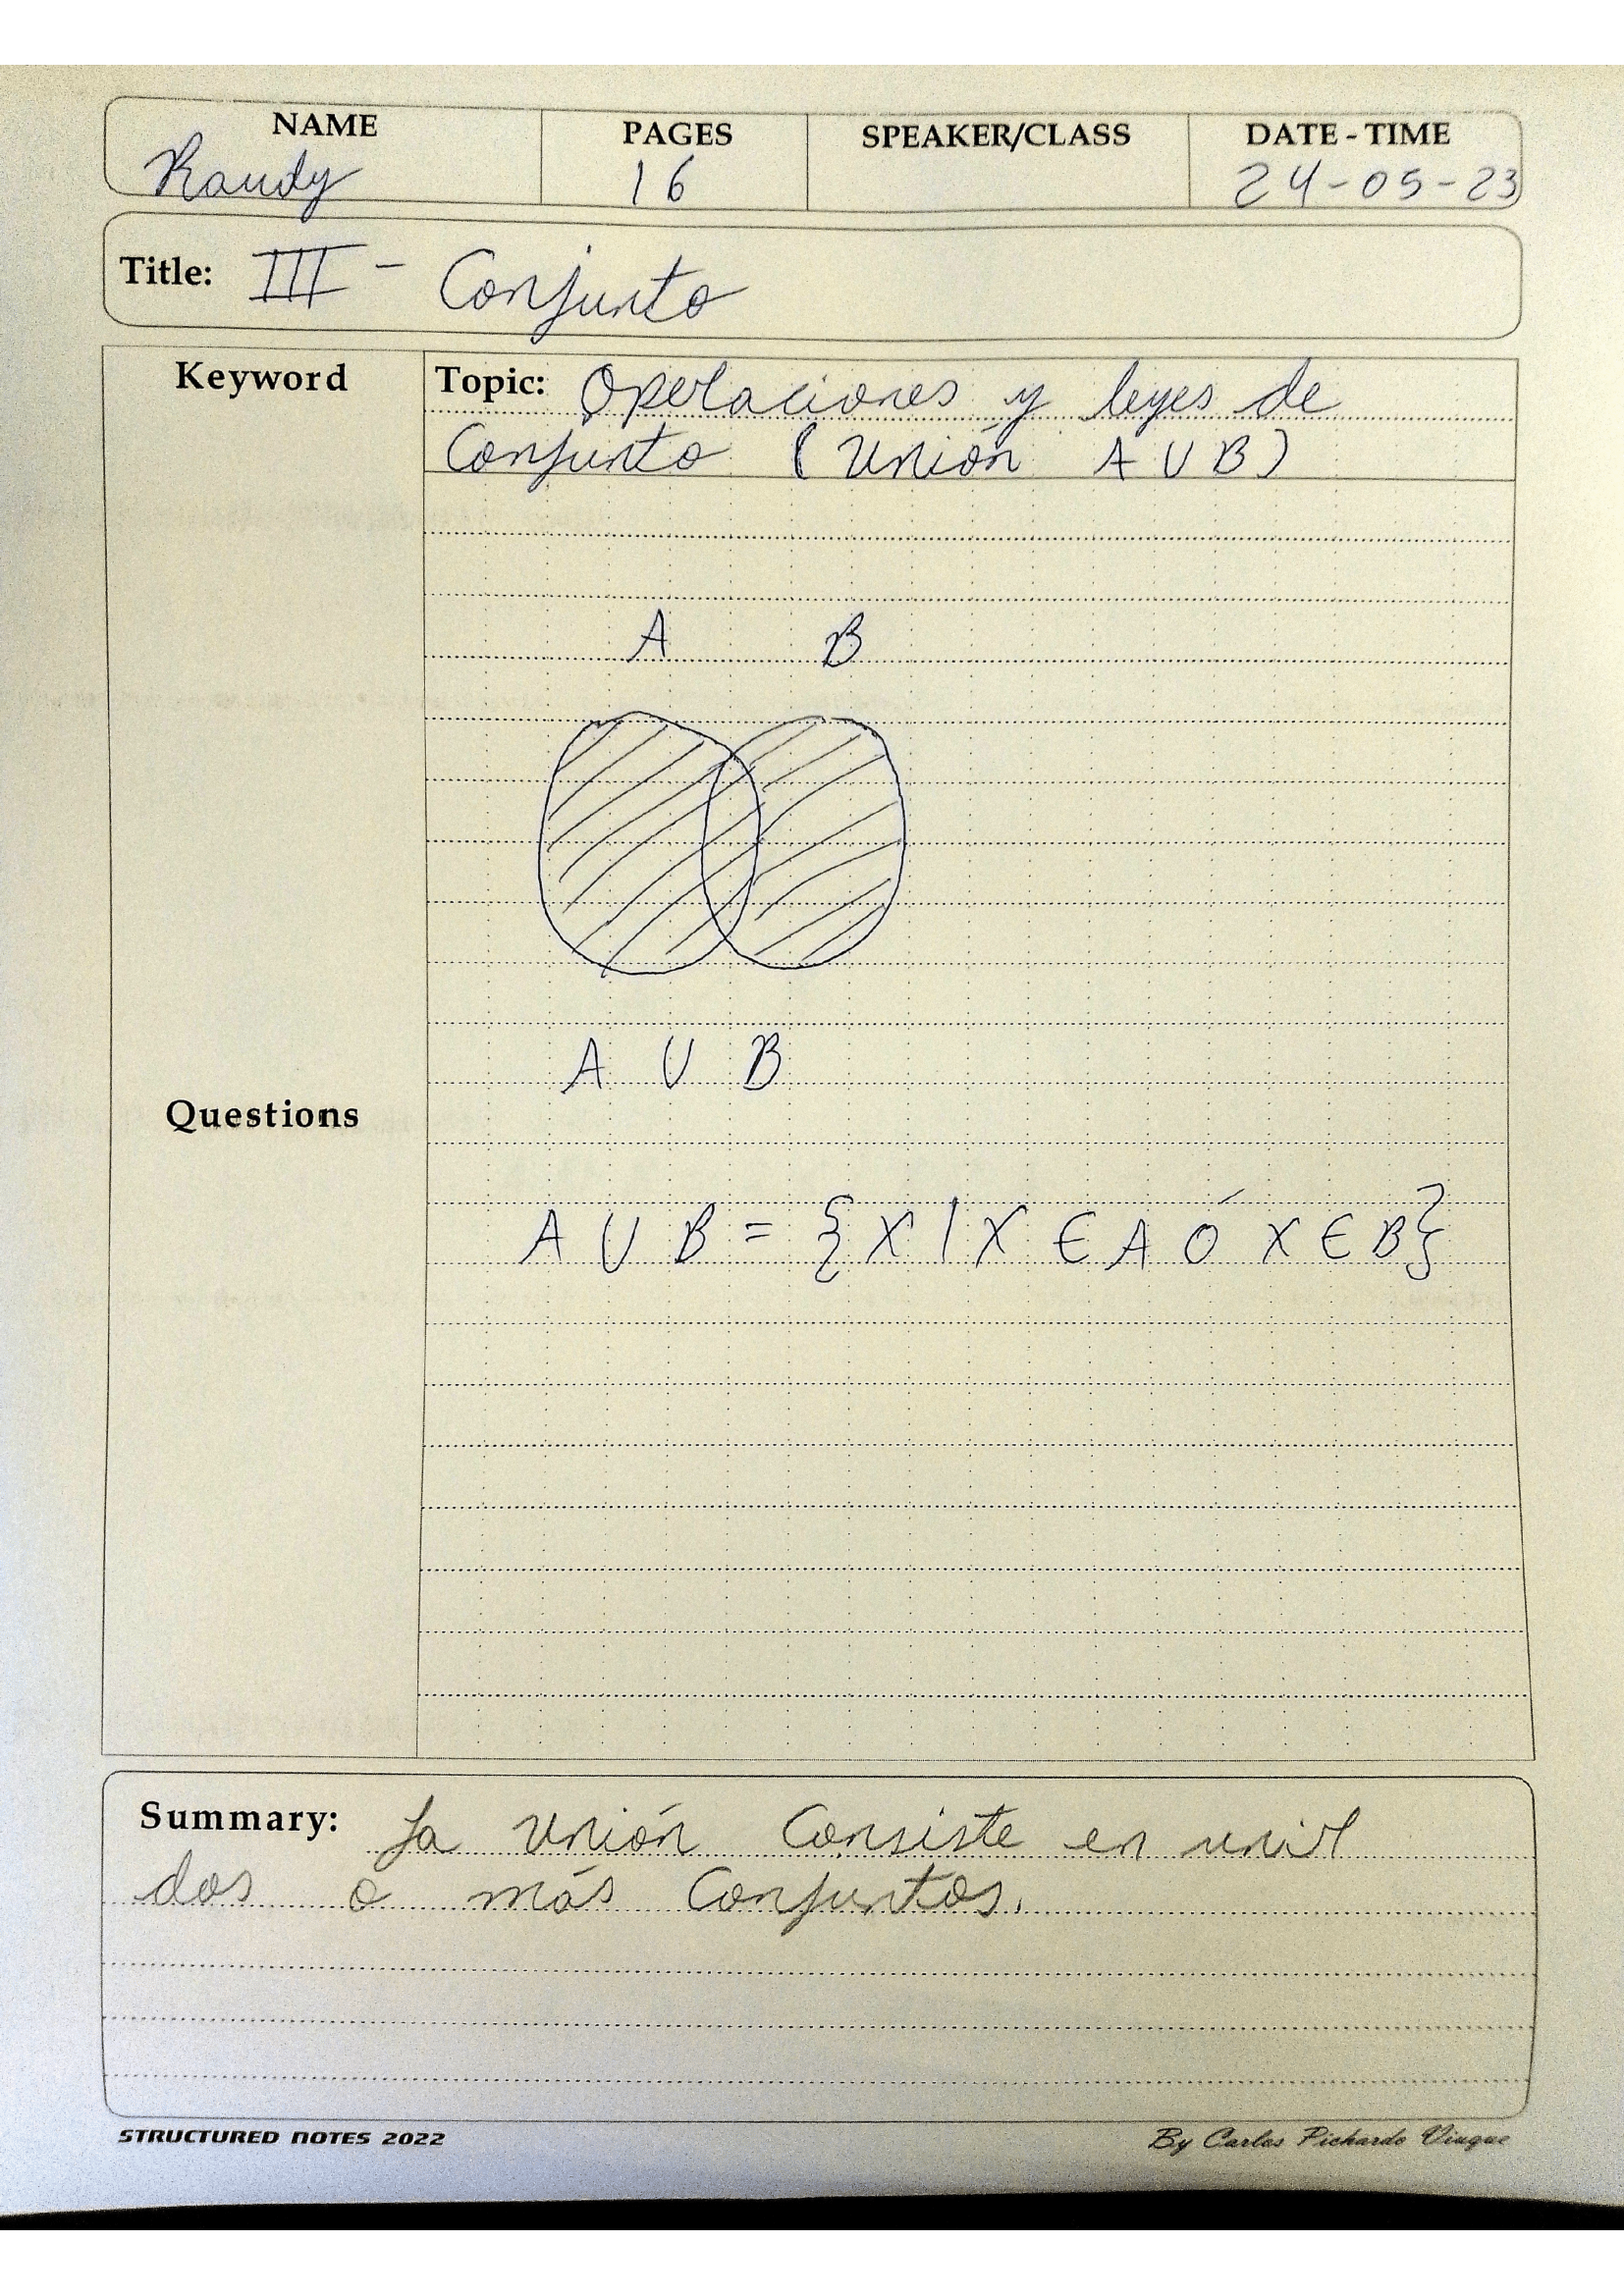 NAME PAGES SPEAKER/CLASS DATE - TIME
Randy 16 24-05-23
Title: III - Conjunto
Keyword
Topic: Operaciones y leyes de
Conjunto (Unión A U B)
A B
A U B
Questions
A U B = {X | X ∈ A Ó X ∈ B}
Summary: La unión consiste en unir
dos o más Conjuntos.
STRUCTURED NOTES 2022 By Carlos Pichardo Viuque